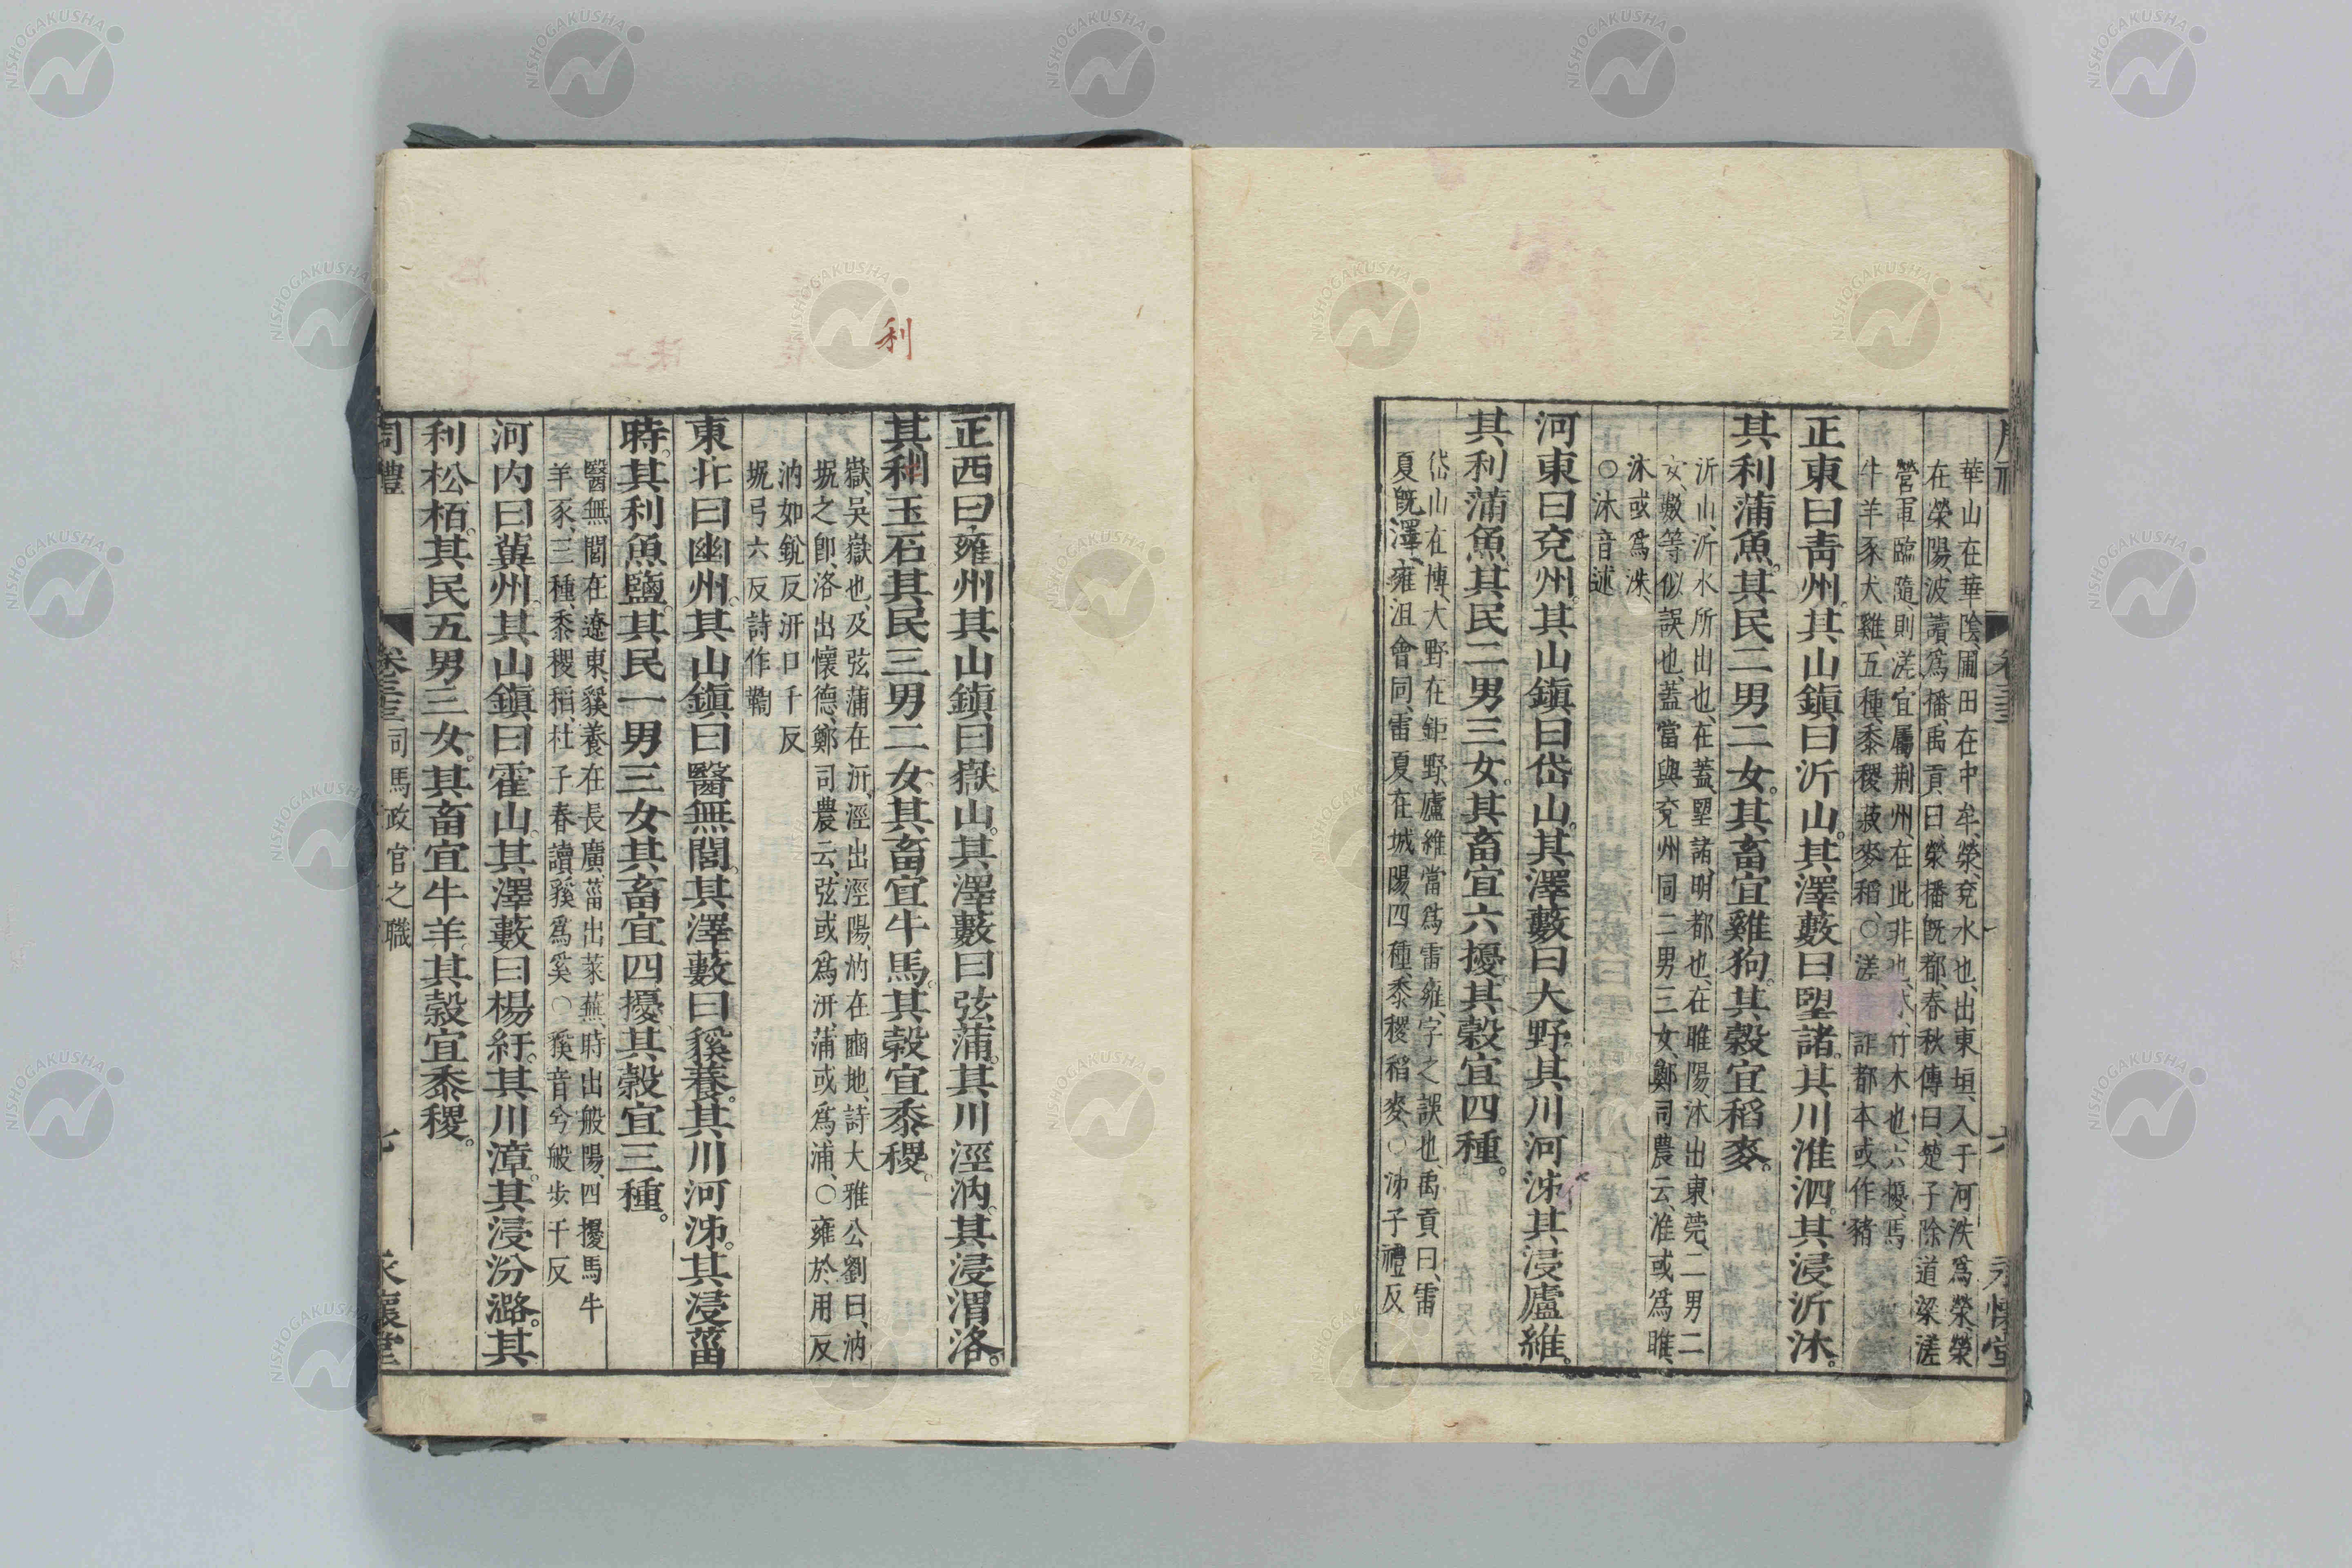 華山在華陰、圃田在中牟、滎、兗水也、出東垣、入于河泆爲滎、滎
在滎陽、波讀爲播、禹貢曰、滎播旣都、春秋傳曰、楚子除道梁溠
營軍臨隨、則溠宜屬荆州、在此非也、林、竹木也、六擾、馬
牛羊豕犬雞、五種、黍稷菽麥稻、○溠 詐都本或作豬
正東曰靑州。其山鎭曰沂山。其澤藪曰望諸。其川淮泗。其浸沂沐。
其利蒲魚。其民二男二女。其畜宜雞狗。其穀宜稻麥。
沂山、沂水所出也、在蓋、望諸、明都也、在睢陽、沐出東莞、二男二
女、數等似誤也、蓋當與兗州同二男三女、鄭司農云、淮或爲睢、
沐或爲洙、
○沐音述
河東曰兗州。其山鎭曰岱山。其澤藪曰大野。其川河泲其浸廬維。
其利蒲魚其民二男三女。其畜宜六擾。其穀宜四種。
岱山在博、大野在鉅野、廬維當爲雷雍、字之誤也、禹貢曰、雷
夏旣澤、雍沮會同、雷夏在城陽、四種、黍稷稻麥、○泲子禮反
利
正西曰雍州其山鎭曰嶽山。其澤藪曰弦蒲。其川涇汭。其浸渭洛。
其利玉石其民三男二女其畜宜牛馬。其穀宜黍稷。
嶽、吳嶽也、及弦蒲在汧、涇出涇陽、汭在豳地、詩大雅公劉曰、汭
坭之卽、洛出懷德、鄭司農云、弦或爲汧、蒲或爲浦、○雍於用反
汭如銳反汧口千反
坭弓六反詩作鞫
東北曰幽州。其山鎭曰醫無閭。其澤藪曰貕養。其川河泲。其浸菑
時。其利魚鹽。其民一男三女其畜宜四擾其穀宜三種。
醫無閭在遼東、貕養在長廣、菑出萊蕪、時出般陽、四擾馬牛
羊豕、三種、黍稷稻、杜子春讀貕爲奚○貕音兮般步干反
河内曰冀州。其山鎭曰霍山。其澤藪曰楊紆。其川漳。其浸汾潞。其
利松柏。其民五男三女。其畜宜牛羊。其穀宜黍稷。
周禮 卷三十三 司馬政官之職 七 永懷堂